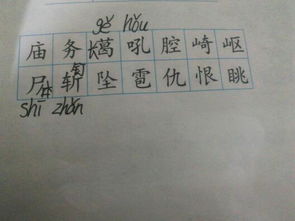 gě hǒu
庙务葛吼腔崎岖
尸斩坠雹仇恨眺
shī zhǎn